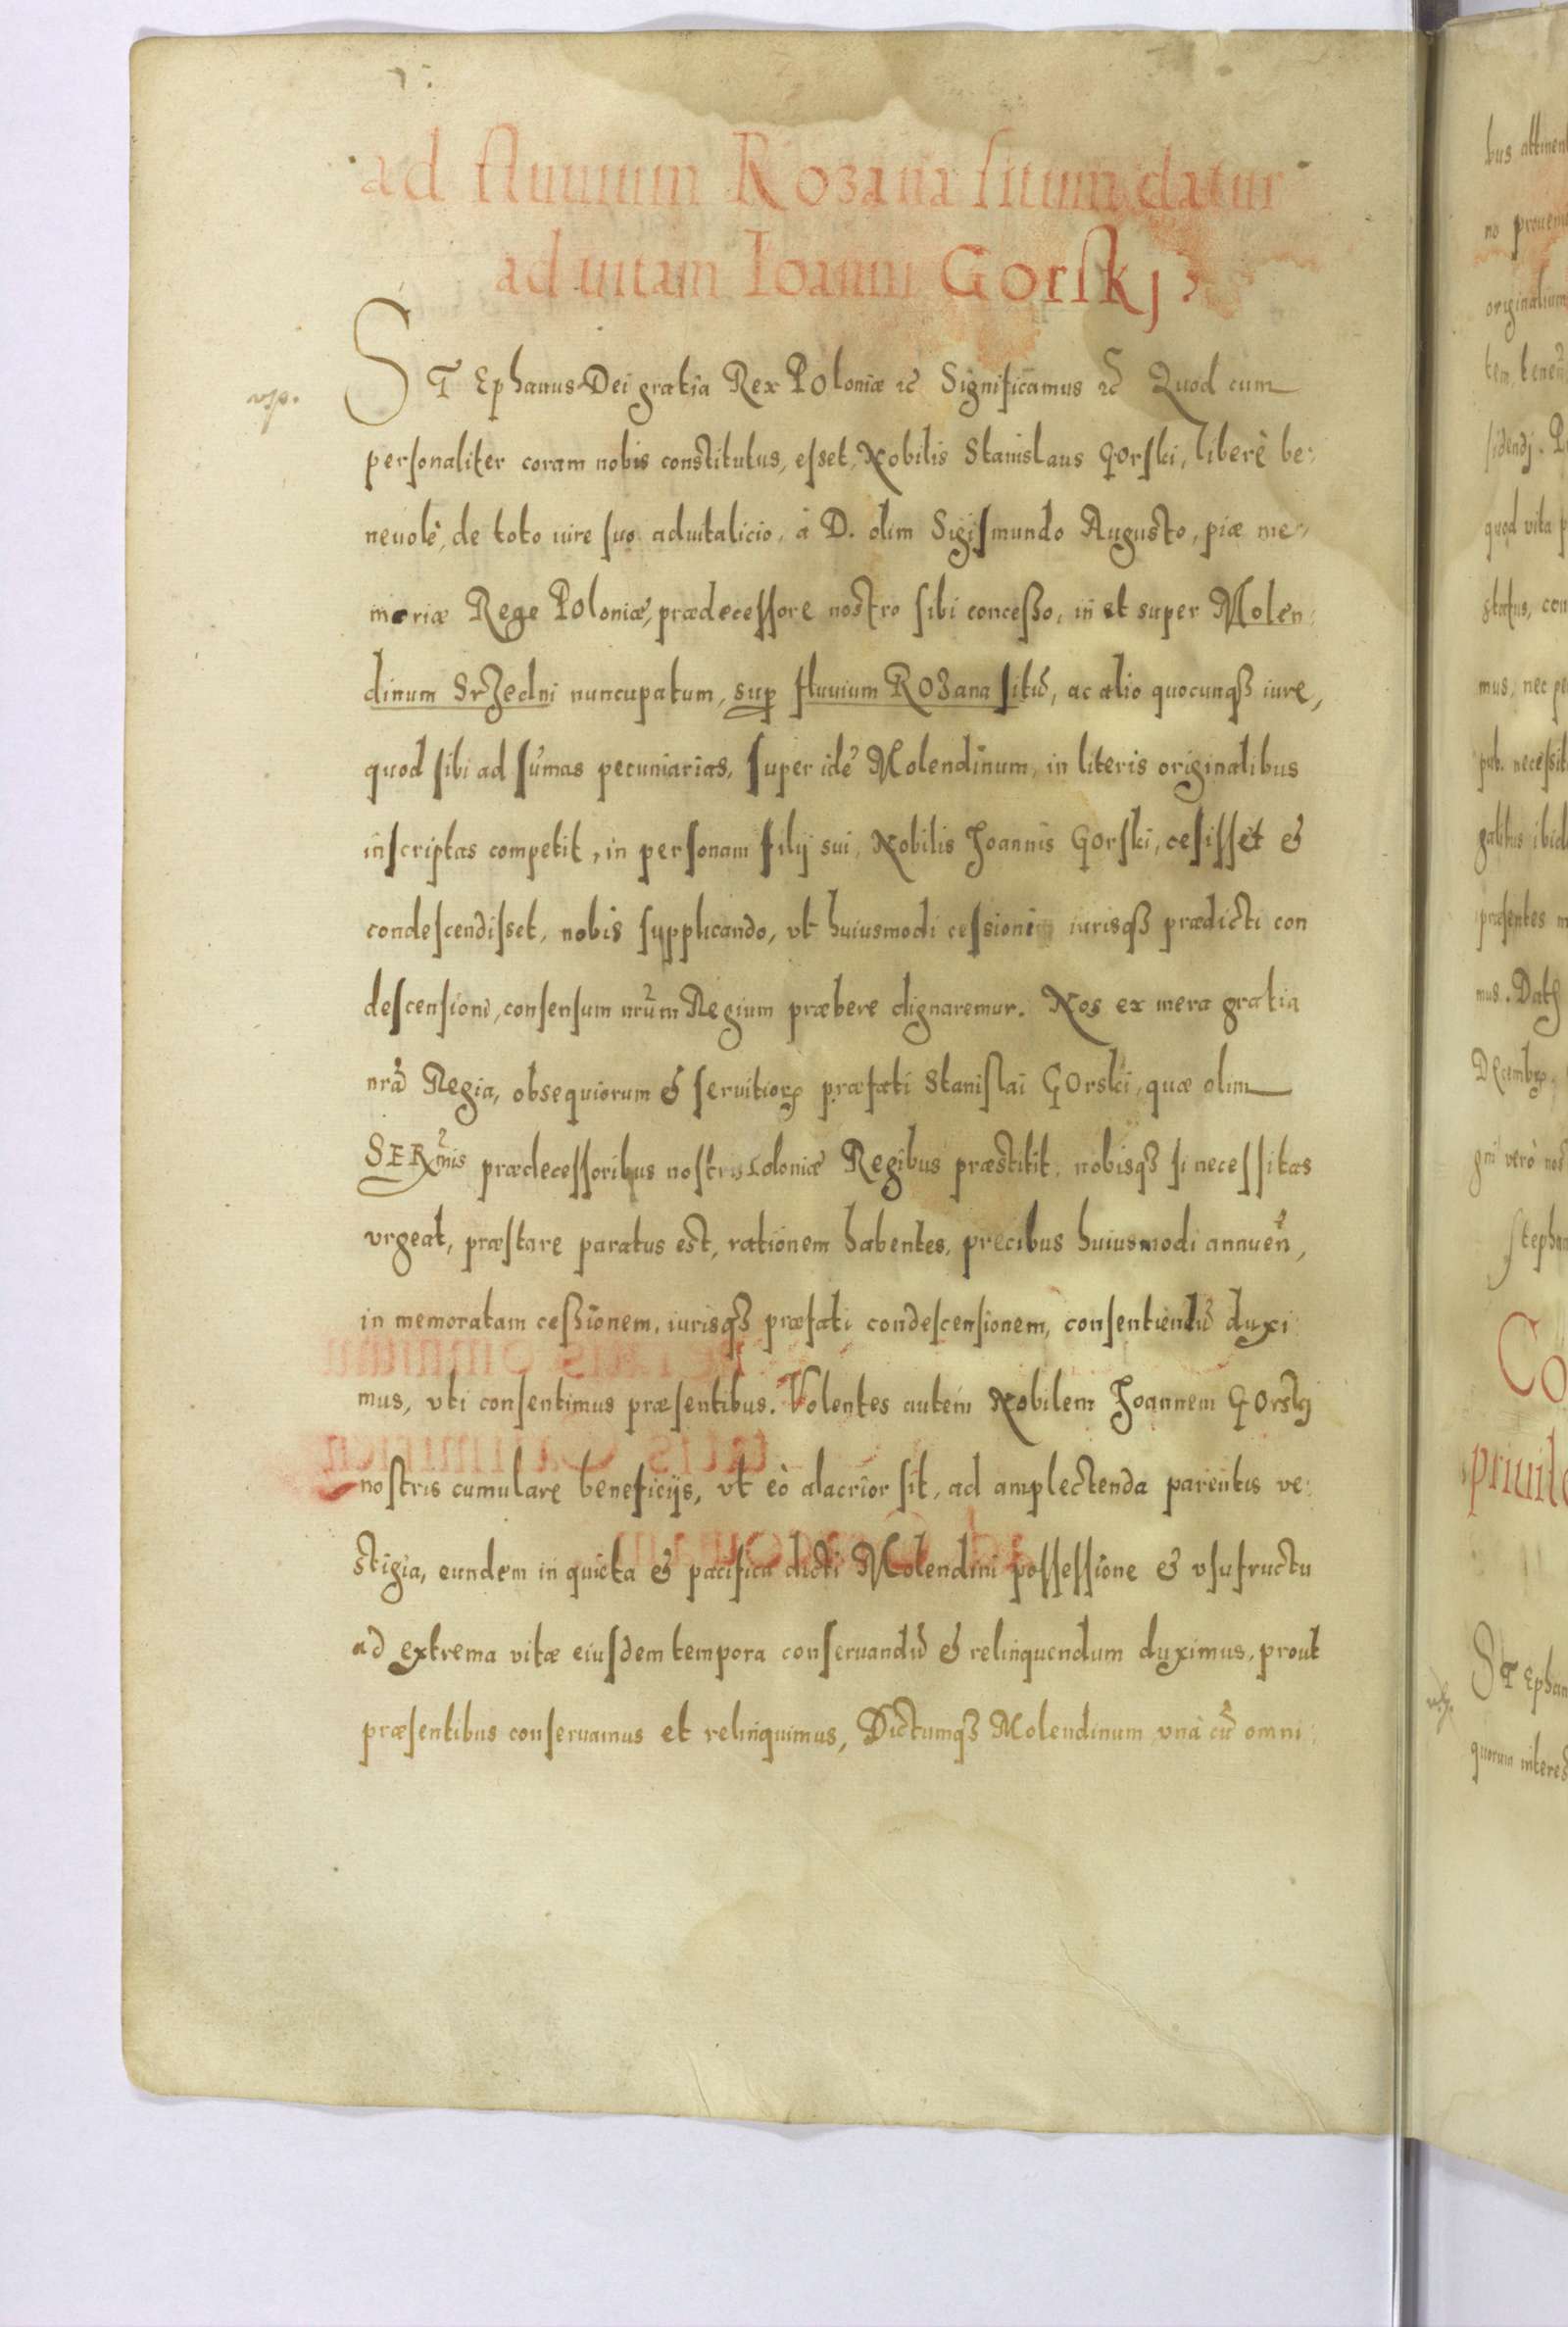 ad fluuium Rozana situm datur
ad uitam Ioanni Gorskj
STEphanus Dei gratia Rex Poloniæ ꝛc̃ Significamus ꝛc̃ Quod cum
personaliter coram nobis constitutus, esset, Nobilis Stanislaus Gorski, liberè be:
neuolè, de toto iure suo aduitalicio, à D. olim Sigismundo Augusto, piæ me:
moriæ Rege Poloniæ, prædecessore nostro sibi conceßo, in et super Molen:
dinum Srzedni nuncupatum, sup̱ fluuium Rozana sitũ, ac alio quocunqꝫ iure,
quod sibi ad sũmas pecuniarias, super idẽ Molendinum, in literis originalibus
inscriptas competit, in personam filij sui, Nobilis Joannis Gorski, cesisset &
condescendisset, nobis supplicando, vt huiusmodi cessioni iurisqꝫ prædicti con
descensioni, consensum nr̃um Regium præbere dignaremur. Nos ex mera gratia
nrã Regia, obsequiorum & seruitioꝝ præfati Stanislai Gorski, quæ olim
SERmis prædecessoribus nostris Poloniæ Regibus præstitit, nobisqꝫ si necessitas
vrgeat, præstare paratus est, rationem habentes, precibus huiusmodi annuẽn,
in memoratam ceßionem, iurisqꝫ præfati condescensionem, consentiendũ duxi
mus, vti consentimus præsentibus. Volentes autem Nobilem Joannem Gorskj
nostris cumulare beneficijs, vt eò alacrior sit, ad amplectenda parentis ve:
stigia, eundem in quieta & pacifica dicti Molendini possessione & vsufructu
ad extrema vitæ eiusdem tempora conseruandũ & relinquendum duximus, prout
præsentibus conseruamus et relinquimus, Dictumqꝫ Molendinum vnà cũ omni:
bus
no
originalium
quod vita
status, con
mus, nec
pub.
præsentes
mus.
gni verò
Co
priuile
STEphan
quorum interes